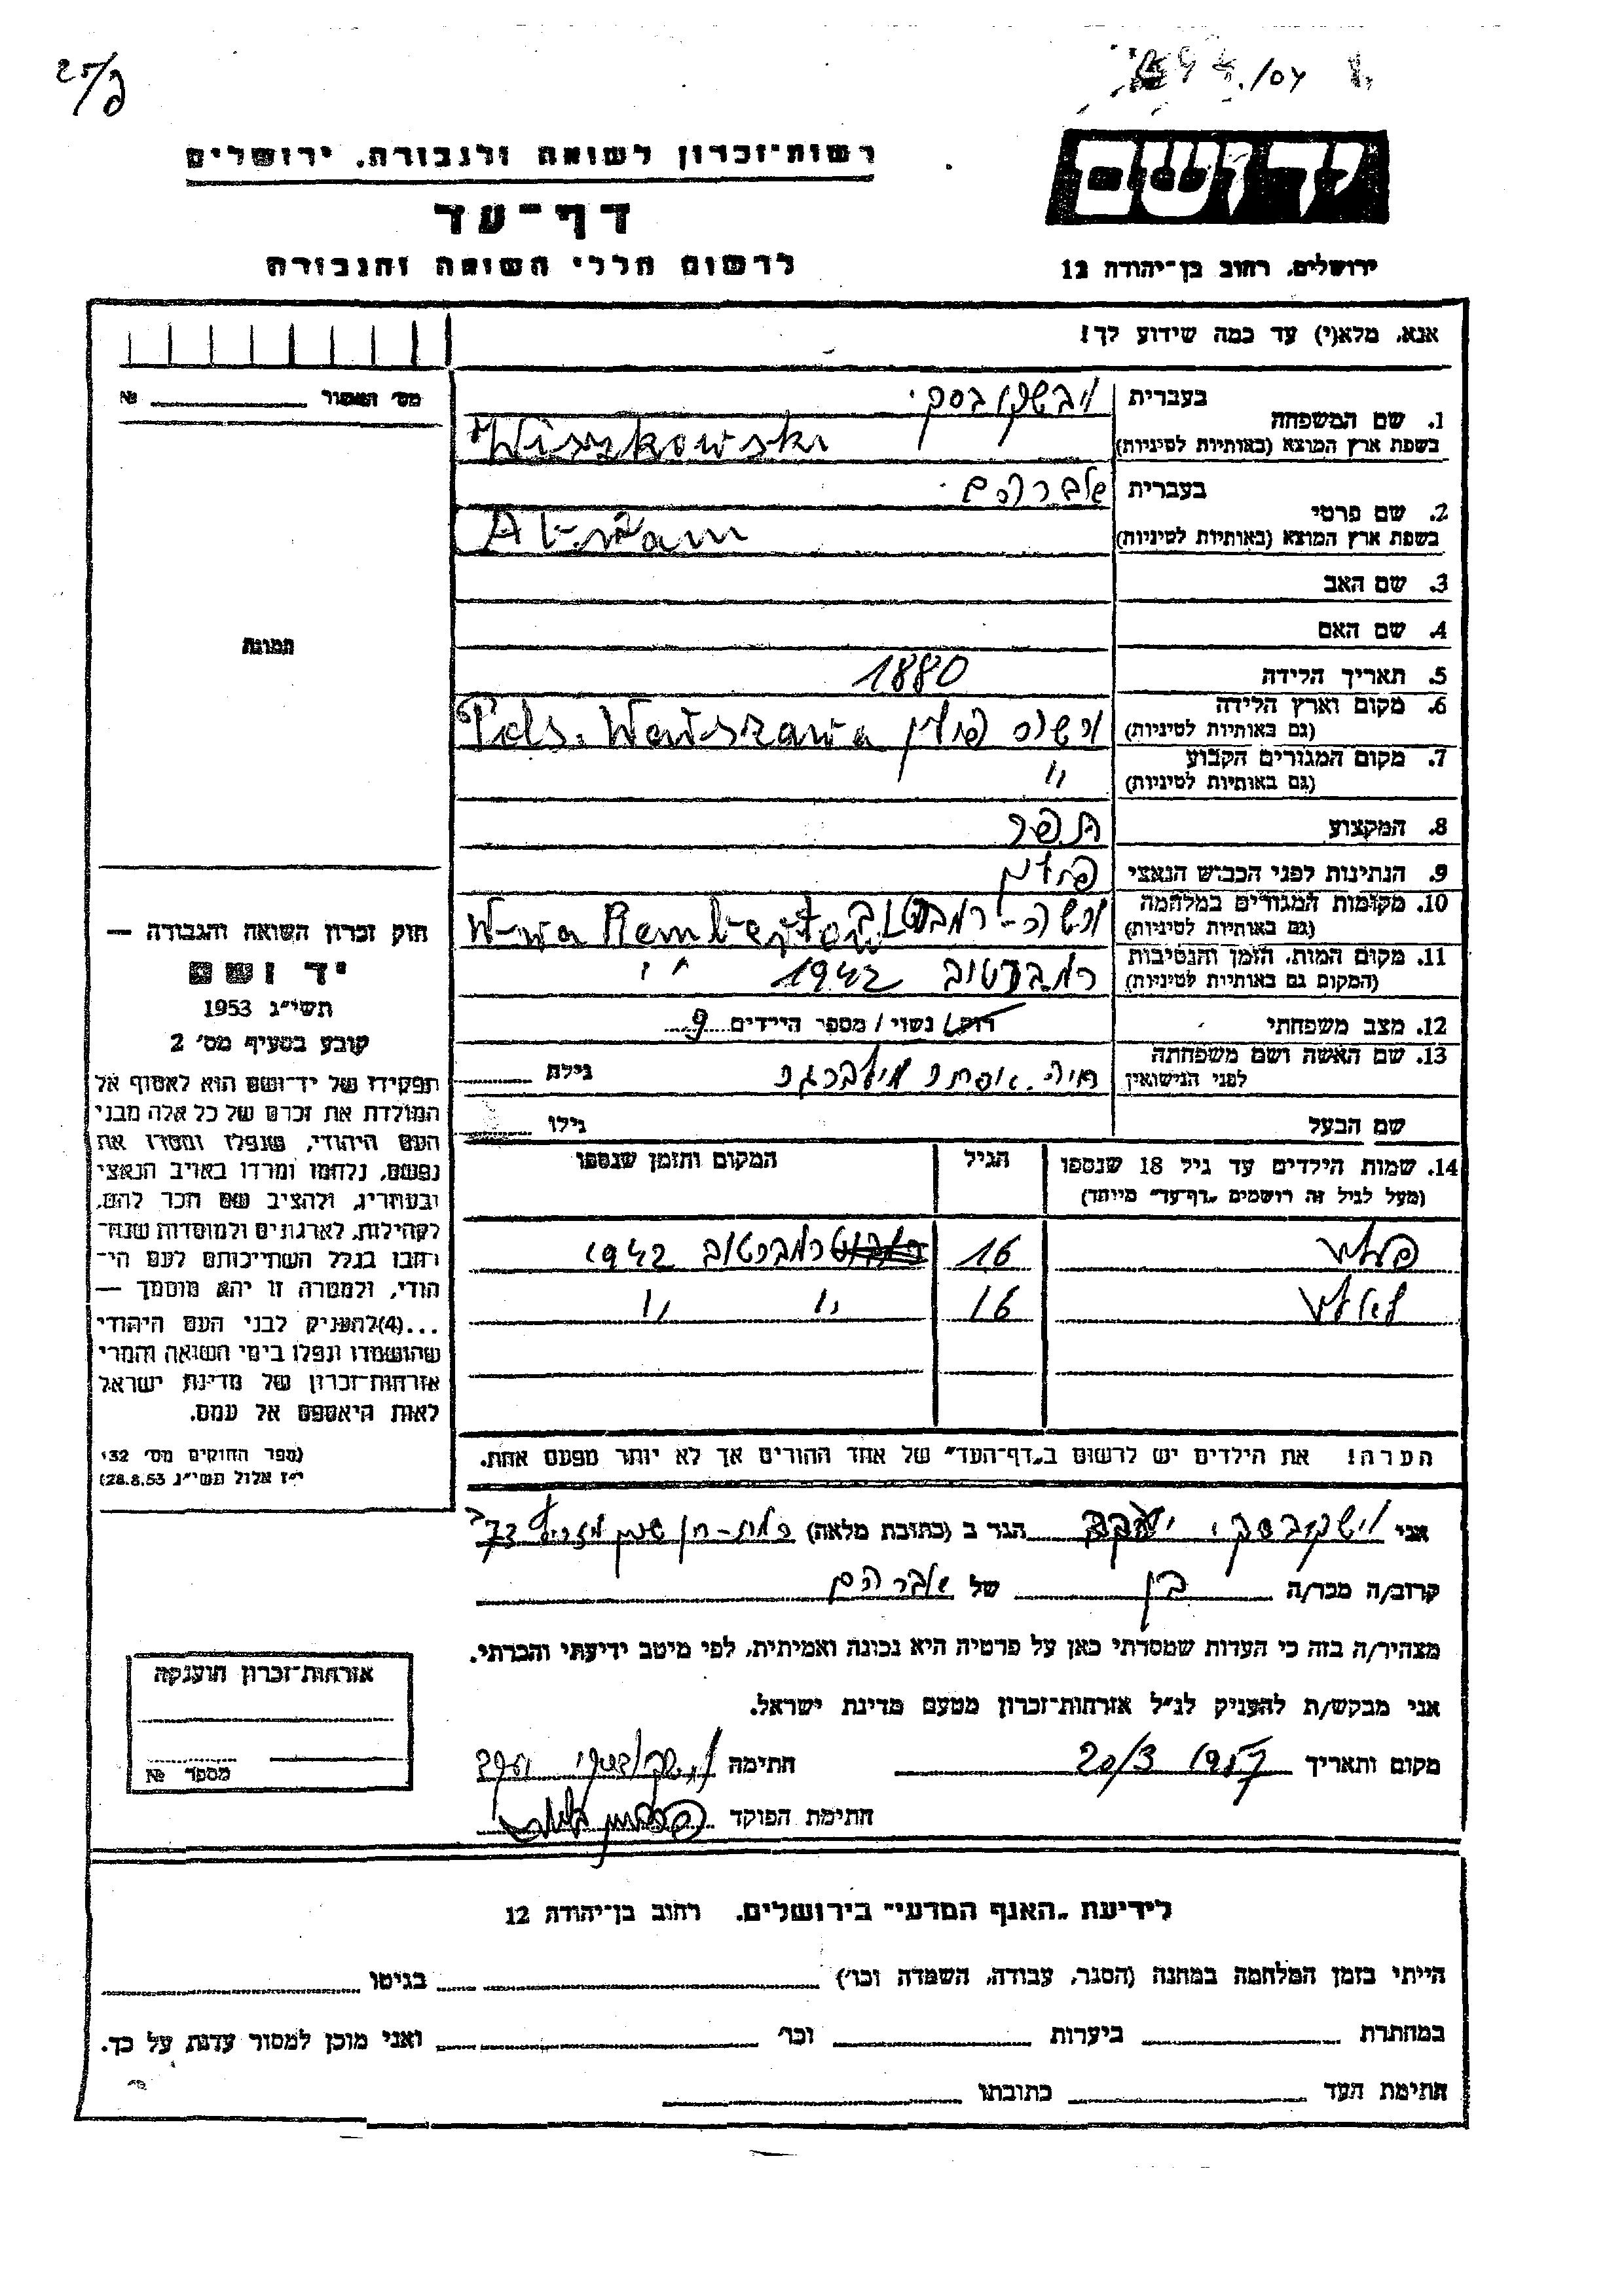 רשות־זכרון לשואה ולגבורה, ירושלים
דף־עד
לרשום חללי השואה והגבורה
יד ושם
ירושלים, רחוב בן־יהודה 12
אנא, מלא(י) עד כמה שידוע לך!
מס׳ האשור № 
1. שם המשפחה
בעברית
וישקובסקי
בשפת ארץ המוצא (באותיות לטיניות)
Wiszkowski
2. שם פרטי
בעברית
אברהם
בשפת ארץ המוצא (באותיות לטיניות)
Abram
3. שם האב
4. שם האם
תמונה
5. תאריך הלידה
1880
6. מקום וארץ הלידה
(גם באותיות לטיניות)
ורשה פולין Warszawa
7. מקום המגורים הקבוע
(גם באותיות לטיניות)
"
8. המקצוע
9. הנתינות לפני הכבוש הנאצי
פולין
10. מקומות המגורים במלחמה
(גם באותיות לטיניות)
ורשה - רמברטוב W-wa Rembertow
11. מקום המות, הזמן והנסיבות
(המקום גם באותיות לטיניות)
רמברטוב 1942
12. מצב משפחתי
רווק / נשוי / מספר הילדים 9
13. שם האשה ושם משפחתה
לפני הנישואין
חיה
גילה
שם הבעל
גילו
14. שמות הילדים עד גיל 18 שנספו
(מעל לגיל זה רושמים „דף־עד״ מיוחד)
הגיל
המקום והזמן שנספו
16 רמברטוב 1942
16 " "
הערה! את הילדים יש לרשום ב„דף־העד״ של אחד ההורים אך לא יותר מפעם אחת.
חוק זכרון השואה והגבורה —
יד ושם
תשי״ג 1953
קובע בסעיף מס׳ 2
תפקידו של יד־ושם הוא לאסוף אל
המולדת את זכרם של כל אלה מבני
העם היהודי, שנפלו ומסרו את
נפשם, נלחמו ומרדו באויב הנאצי
ובעוזריו, ולהציב שם וזכר להם,
לקהילות, לארגונים ולמוסדות שנח־
רבו בגלל השתייכותם לעם הי־
הודי, ולמטרה זו יהא מוסמך —
...(4)להעניק לבני העם היהודי
שהושמדו ונפלו בימי השואה והמרי
אזרחות־זכרון של מדינת ישראל
לאות היאספם אל עמם.
(ספר החוקים מס׳ 132
י״ז אלול תשי״ג 28.8.53)
אני וישקובסקי יעקב הגר ב (כתובת מלאה) רמת-חן
קרוב/ה מכר/ה בן של אברהם
מצהיר/ה בזה כי העדות שמסרתי כאן על פרטיה היא נכונה ואמיתית, לפי מיטב ידיעתי והכרתי.
אני מבקש/ת להעניק לנ״ל אזרחות־זכרון מטעם מדינת ישראל.
מקום ותאריך 20/3 1957 חתימה
חתימת הפוקד
אזרחות־זכרון הוענקה
מספר №
לידיעת „האגף המדעי״ בירושלים, רחוב בן־יהודה 12
הייתי בזמן המלחמה במחנה (הסגר, עבודה, השמדה וכו׳) בגיטו
במחתרת ביערות וכו׳ ואני מוכן למסור עדות על כך.
חתימת העד כתובתו